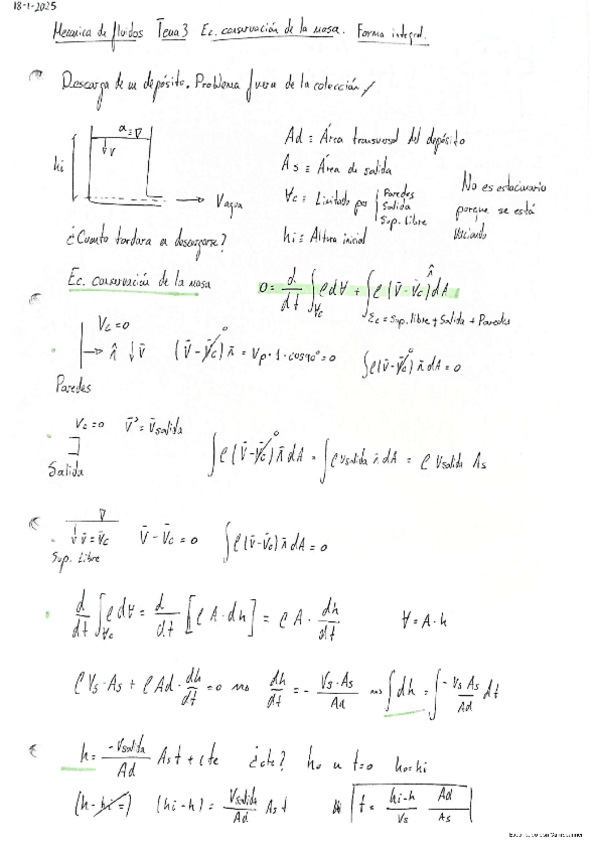 18-1-2025
Mecanica de fluidos Tema 3 Ec. conservación de la masa. Forma integral.
Descarga de un depósito. Problema fuera de la colección
hi
v
Vagua
Ad ≡ Área transversal del depósito
As ≡ Área de salida
∀c ≡ Limitado por { Paredes Salida Sup. libre
hi ≡ Altura inicial
No es estacionario
porque se está
vaciando
¿Cuanto tardara a descargarse?
Ec. conservación de la masa
0 = d/dt ∫∀c ρ d∀ + ∫ ρ (v̄ - v̄c) n̂ dA
Σc = Sup. libre + Salida + Paredes
Vc = 0
n̂ ↓ v̄ (v̄ - v̄c) n̄ = Vp · 1 · cos90° = 0 ∫ρ(v̄ - v̄c) n̄ dA = 0
Paredes
Vc = 0 v̄ = v̄salida
∫ρ (v̄ - v̄c) n̄ dA = ∫ρ vsalida n̄ dA = ρ Vsalida As
Salida
↓ v̄ = v̄c v̄ - v̄c = 0 ∫ρ(v̄ - v̄c) n̄ dA = 0
Sup. Libre
d/dt ∫∀c ρ d∀ = d/dt [ρ A · dh] = ρ A · dh/dt ∀ = A · h
ρ Vs · As + ρ Ad · dh/dt = 0 dh/dt = - Vs · As / Ad ∫dh = ∫ - Vs As / Ad dt
h = -Vsalida / Ad As t + cte ¿cte? t=0 h=hi
(h - hi =) (hi - h) = Vsalida / Ad As t t = hi - h / Vs Ad / As